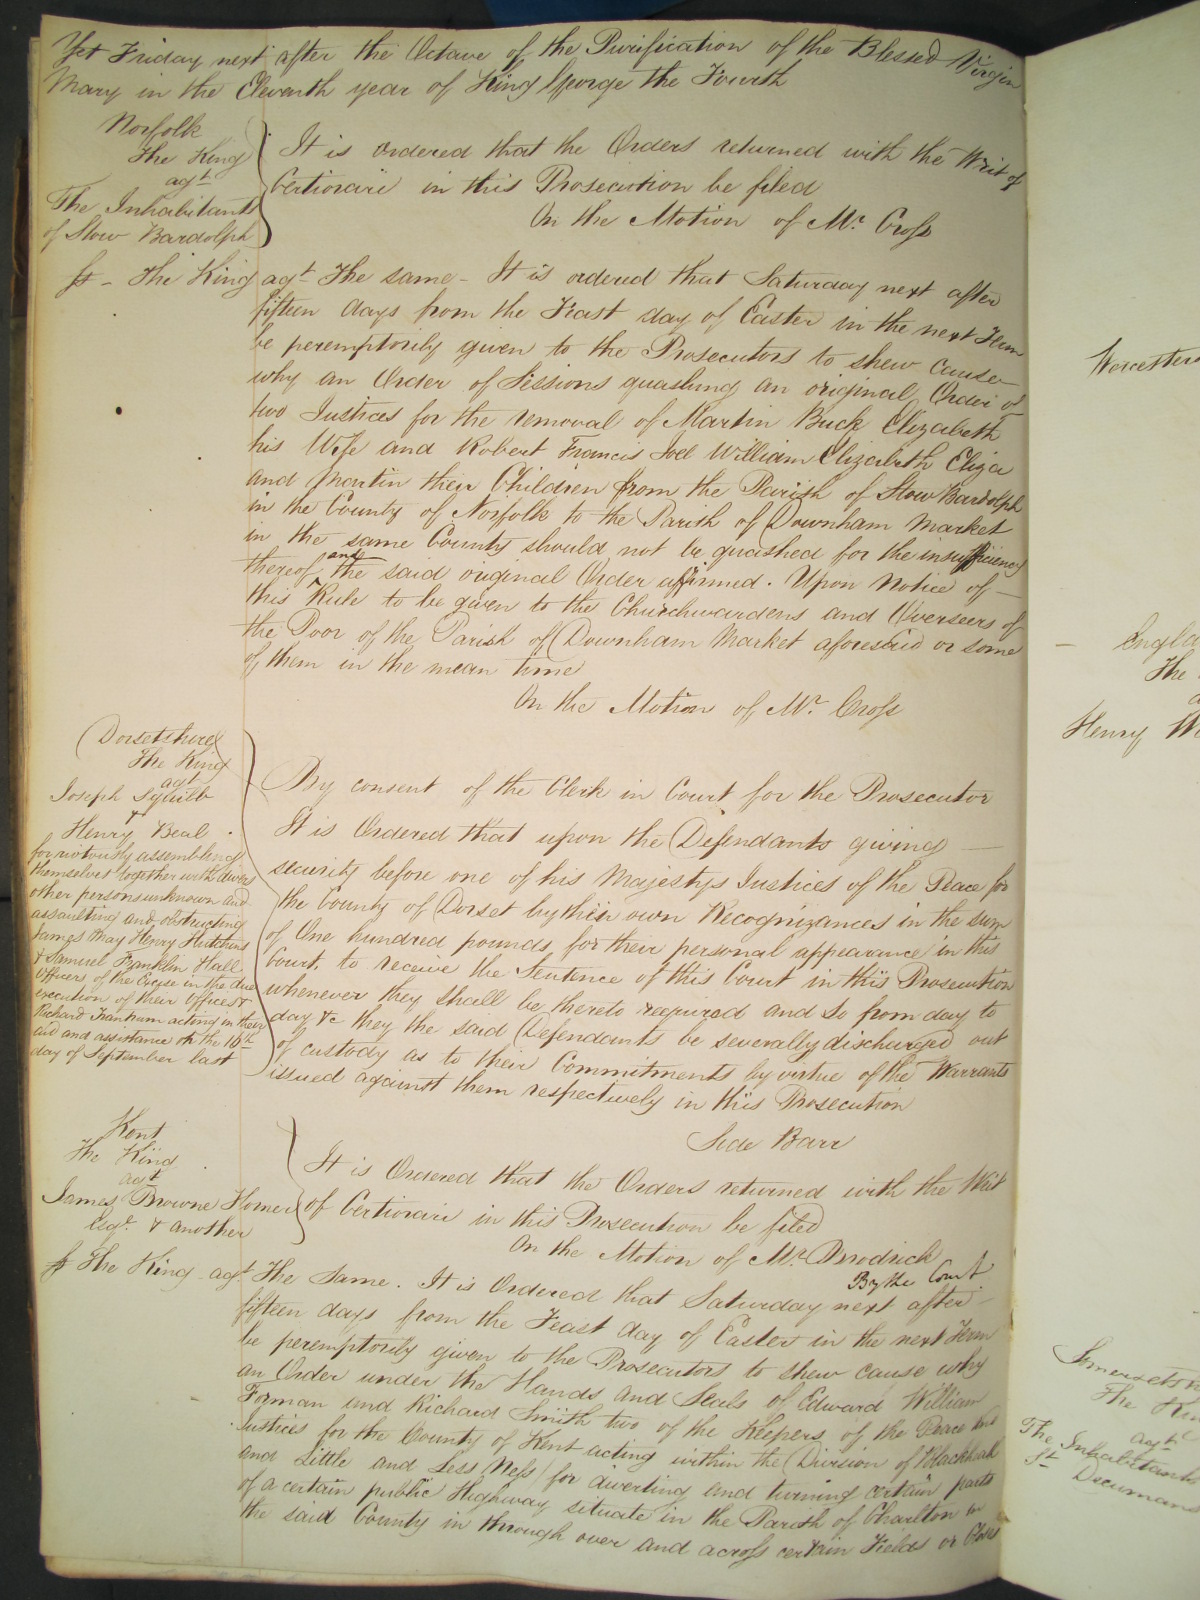 Yet Friday next after the Octave of the Purification of the Blessed Virgin
Mary in the Eleventh year of King George the Fourth
Norfolk
The King
agt
The Inhabitants
of Stow Bardolph
It is ordered that the Orders returned with the Writ of
Certiorari in this Prosecution be filed
On the Motion of Mr. Cross
St - The King agt The same - It is ordered that Saturday next after
fifteen days from the Feast day of Easter in the next Term
be peremptorily given to the Prosecutors to shew cause
why an Order of Sessions quashing an original Order of
two Justices for the removal of Martin Buck Elizabeth
his Wife and Robert Francis Joel William Elizabeth Eliza
and Martin their Children from the Parish of Stow Bardolph
in the County of Norfolk to the Parish of Downham Market
in the same County should not be quashed for the insufficiency
thereof and the said original Order affirmed. Upon Notice of
this Rule to be given to the Churchwardens and Overseers of
the Poor of the Parish of Downham Market aforesaid or some
of them in the mean time
On the Motion of Mr. Cross
Dorsetshire
The King
agt
Joseph Squibb
&
Henry Beal
for riotously assembling
themselves together with divers
other persons unknown and
assaulting and obstructing
James May Henry Hutchins
& Samuel Franklin Hall
Officers of the Excise in the due
execution of their Offices &
Richard Franham acting in their
aid and assistance on the 16th
day of September last
By consent of the Clerk in Court for the Prosecutor
It is Ordered that upon the Defendants giving
security before one of his Majestys Justices of the Peace for
the County of Dorset by their own Recognizances in the sum
of One hundred pounds for their personal appearance in this
Court, to receive the Sentence of this Court in this Prosecution
whenever they shall be thereto required and so from day to
day &c they the said Defendants be severally discharged out
of custody as to their Commitments by virtue of the Warrants
issued against them respectively in this Prosecution
Side Barr
Kent
The King
agt
James Browne Homer
Esqr. & another
It is Ordered that the Orders returned with the Writ
of Certiorari in this Prosecution be filed
On the Motion of Mr. Brodrick
By the Court
St The King agt The Same. It is Ordered that Saturday next after
fifteen days from the Feast day of Easter in the next Term
be peremptorily given to the Prosecutors to shew cause why
an Order under the Hands and Seals of Edward William
Forman and Richard Smith two of the Keepers of the Peace and
Justices for the County of Kent acting within the Division of Blackheath
and Little and Less Ness for diverting and turning certain parts
of a certain public Highway situate in the Parish of Charlton in
the said County in through over and across certain Fields or Closes
Worcesters
Engla
The
Henry
Somersetsh
The Kin
agt
The Inhabitants
St
Decumans